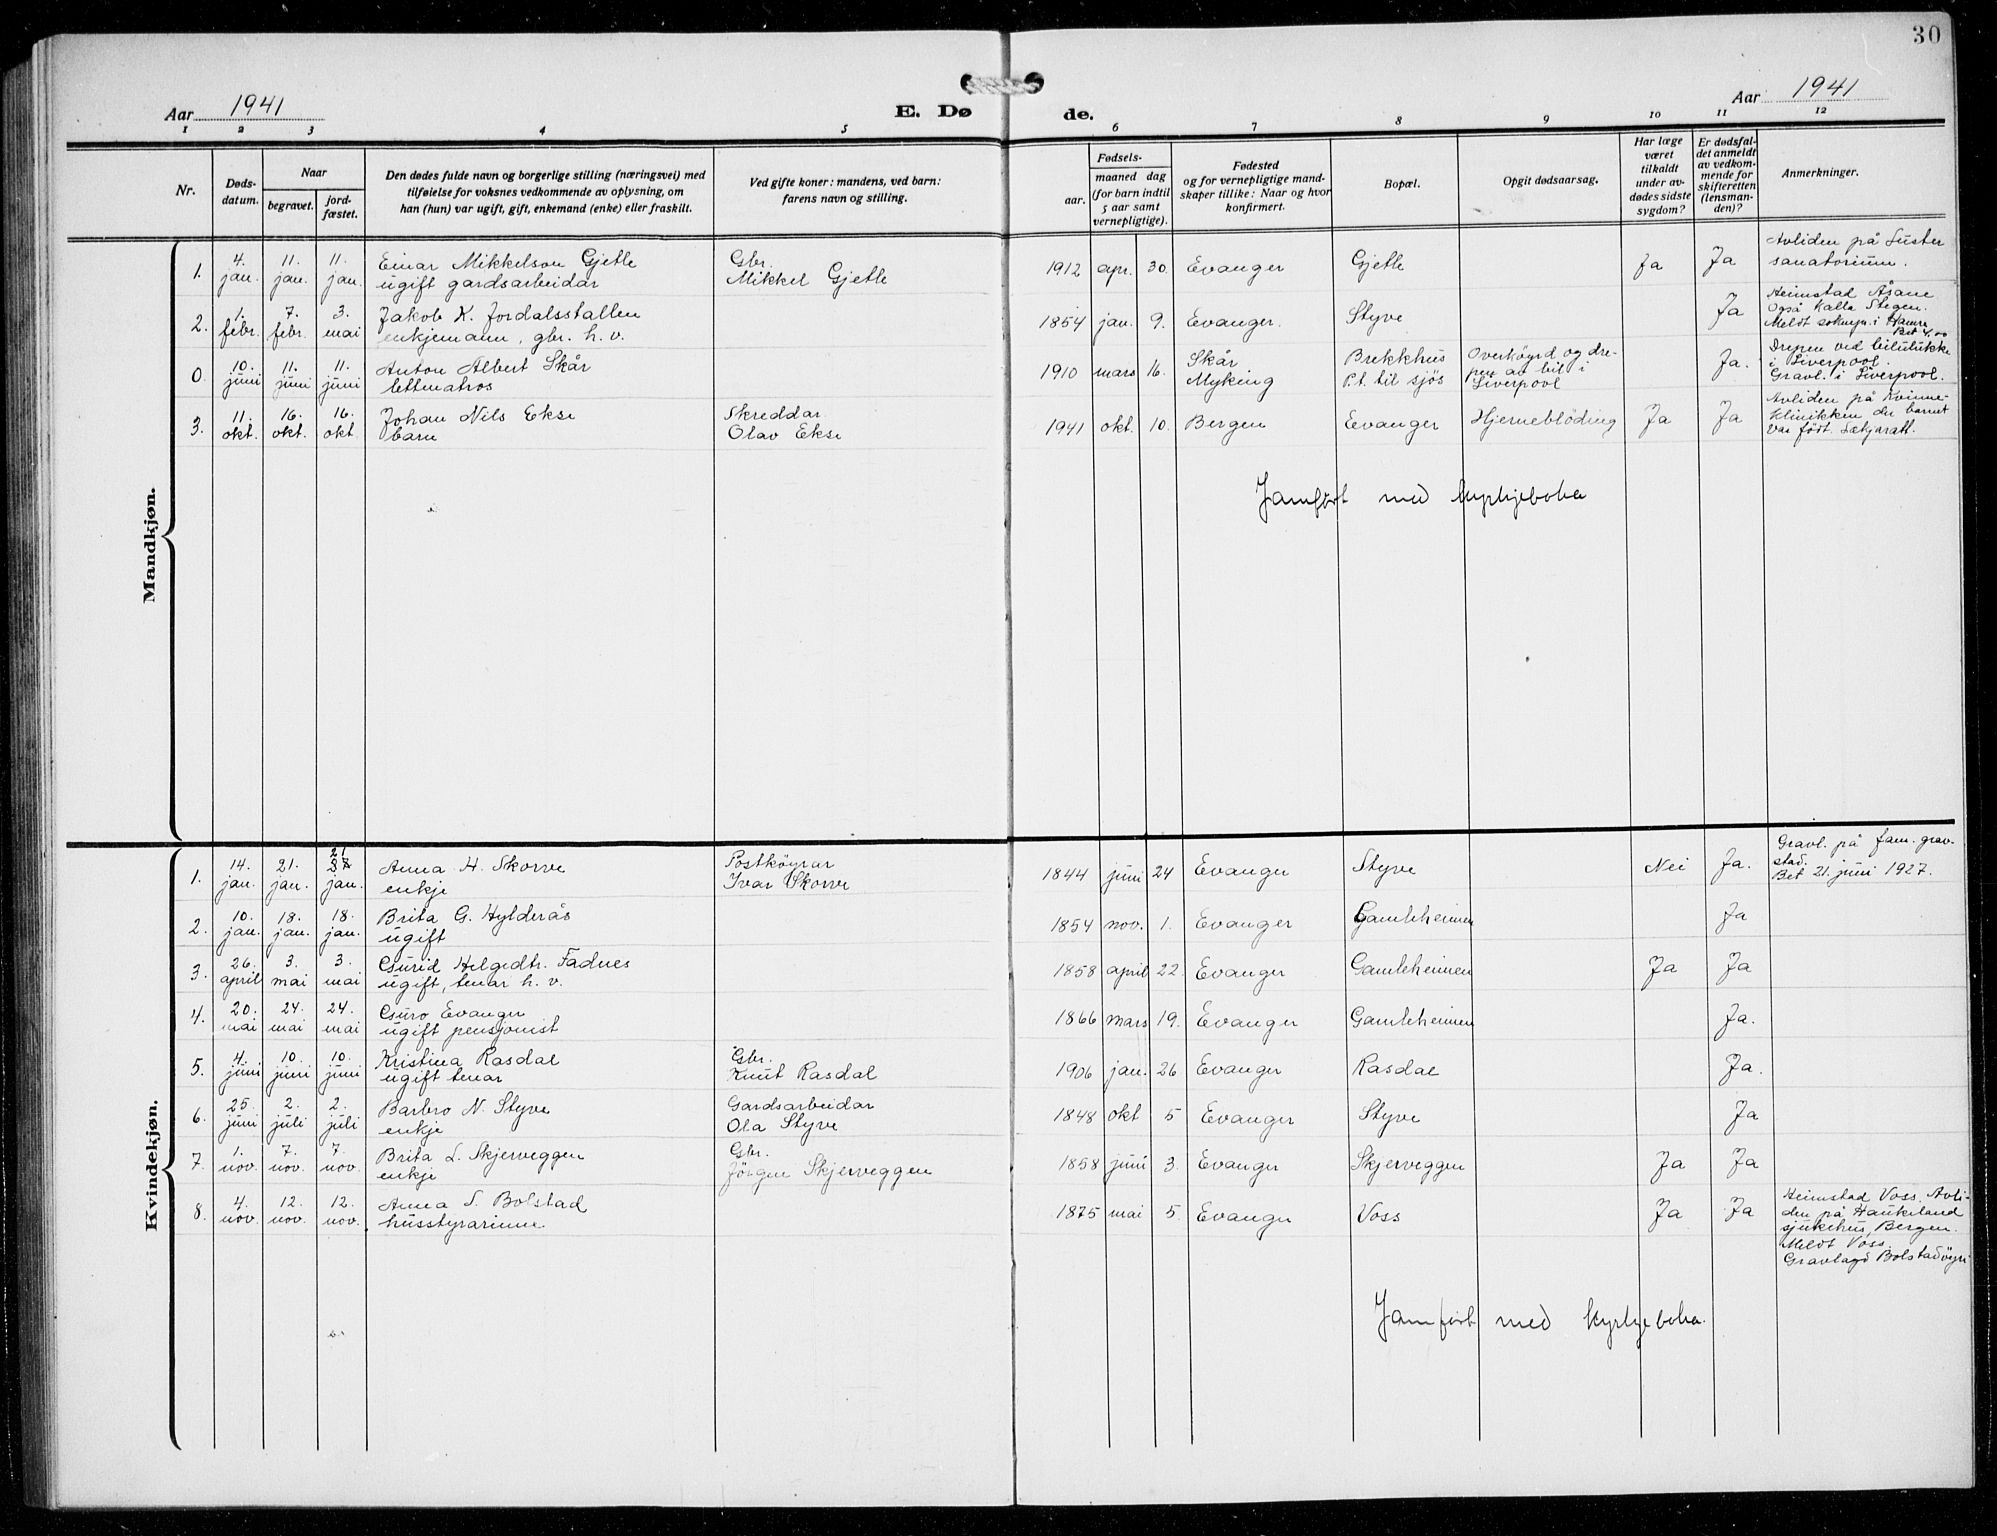 30
Aar 1941
E. Dø de.
Aar 1941
1 2 3 4 5 6 7 8 9 10 11 12
Nr.
Døds-
datum.
Naar
begravet.
jord-
fæstet.
Den dødes fulde navn og borgerlige stilling (næringsvei) med
tilføielse for voksnes vedkommende av oplysning, om
han (hun) var ugift, gift, enkemand (enke) eller fraskilt.
Ved gifte koner: mandens, ved barn:
farens navn og stilling.
Fødsels-
aar.
maaned dag
(for barn indtil
5 aar samt
vernepligtige).
Fødested
og for vernepligtige mand-
skaper tillike: Naar og hvor
konfirmert.
Bopæl.
Opgit dødsaarsag.
Har læge
været
tilkaldt
under av-
dødes sidste
sygdom?
Er dødsfal-
det anmeldt
av vedkom-
mende for
skifteretten
(lensman-
den)?
Anmerkninger.
Mandkjøn.
1. 4. jan. 11. jan. 11. jan. Einar Mikkelson Gjetle
ugift gardsarbeidar
Gbr.
Mikkel Gjetle
1912 apr. 30. Evanger Gjetle Ja Ja
Avliden på Luster
sanatorium.
2. 1. febr. 7. febr. 3. mai Jakob K. Jordalsstallen
enkjemann, gbr. h. v.
1854 jan. 9. Evanger. Styve Ja
Heimstad Åsane
Også kalla Stegen.
Meldt soknepr. i Hamre
Bet 4.00
0 10. juni 11. juni 11. juni Anton Albert Skår
lettmatros
1910 mars 16. Skår
Myking
Brekkhus
P.t. til sjøs
Overkøyrd og dre-
pen av bil i
Liverpool
Ja.
Drepen ved bilulukke
i Liverpool.
Gravl. i Liverpool.
3. 11. okt. 16. okt. 16. okt Johan Nils Ekse
barn
Skreddar
Olav Ekse
1941 okt. 10. Bergen Evanger Hjerneblöding Ja Ja
Avliden på Kvinne-
klinikken der barnet
var födt. Lækjaratt.
Jamført med kyrkjeboka
Kvindekjøn.
1. 14. jan. 21. jan. 21 27 jan. Anna H. Skorve
enkje
Postköyrar
Ivar Skorve
1844 juni 24 Evanger Styve Nei Ja.
Gravl. på fam. grav-
stad.
Bet 21. juni 1927.
2. 10. jan. 18. jan. 18. jan. Brita G. Hylderås
ugift
1854 nov. 1. Evanger Gamleheimen Ja
3. 26. april 3. mai 3. mai Gurid Helgedtr. Fadnes
ugift, tenar h. v.
1858 april 22. Evanger Gamleheimen Ja Ja
4. 20. mai 24. mai 24. mai Guro Evanger
ugift pensjonist
1866 mars 19. Evanger Gamleheimen Ja.
5. 4. juni 10. juni 10. juni Kristina Rasdal
ugift tenar
Gbr.
Knut Rasdal
1906 jan. 26 Evanger Rasdal Ja.
6. 25. juni 2. juli 2. juli Barbro N. Styve
enkje
Gardsarbeidar
Ola Styve
1848 okt 5 Evanger Styve Ja
7. 1. nov. 7. nov. 7. nov. Brita L. Skjerveggen
enkje
Gbr.
Jörgen Skjerveggen
1858 juni 3. Evanger Skjerveggen Ja Ja
8. 4. nov. 12. nov. 12. nov. Anna S. Bolstad
husstyrarinne
1875 mai 5. Evanger Voss Ja Ja
Heimstad Voss. Avli-
den på Haukeland
sjukehus, Bergen.
Meldt Voss.
Gravlagd Bolstadöyri
Jamført med kyrkjeboka.